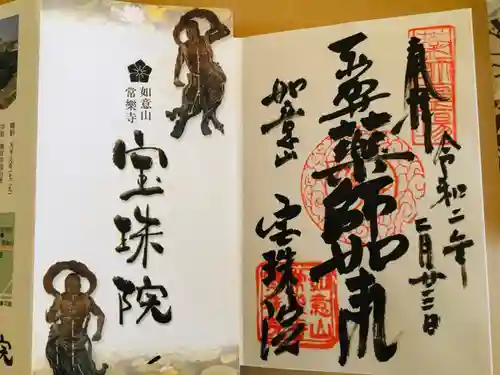 如意山
常樂寺
宝珠院
奉拝
令和二年
二月廿三日
薬師如来
如意山
宝珠院
如意山